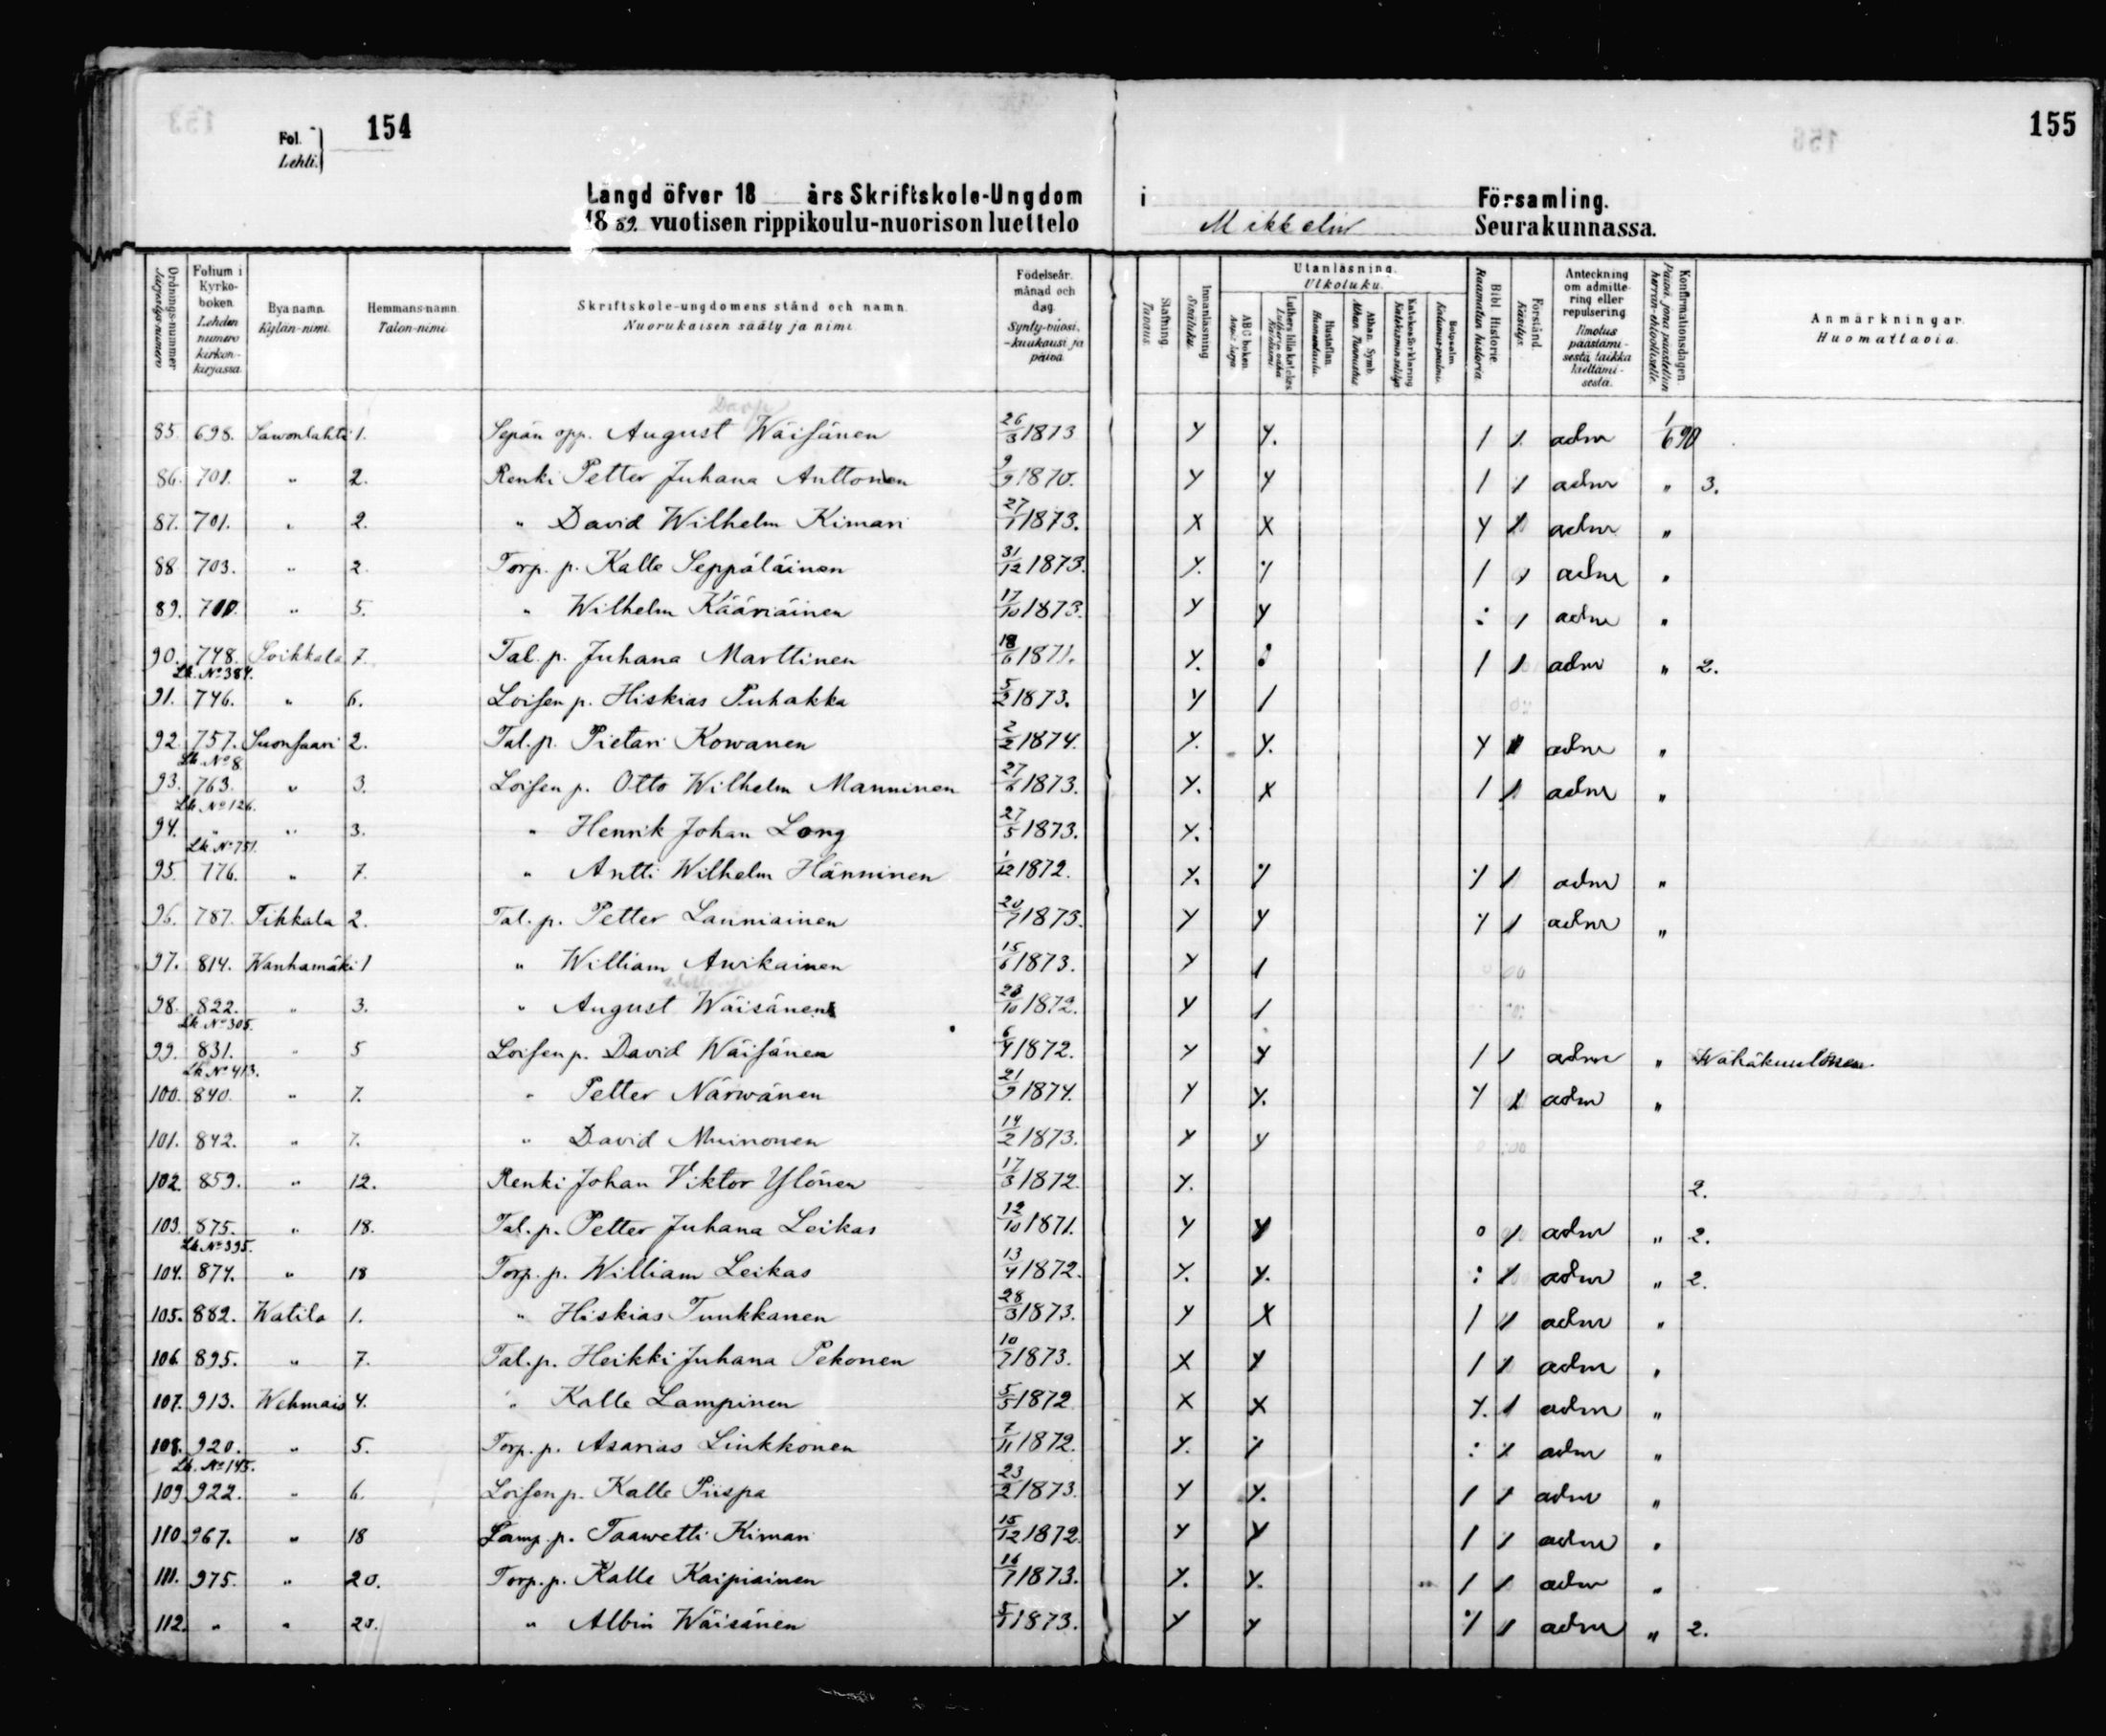 154
155
Fol.
Lehti.
Längd öfver 18 års Skriftskole-Ungdom i Församling.
1889. vuotisen rippikoulu-nuorison luettelo Mikkelin Seurakunnassa.
Ordnings-nummer Järjestys-numero
Folium i Kyrko-boken. Lehden numero kirkon-kirjassa.
Bya namn. Kylän-nimi.
Hemmans-namn. Talon-nimi
Skriftskole-ungdomens stånd och namn. Nuorukaisen sääty ja nimi.
Födelseår. månad och dag. Synty-vuosi, -kuukausi ja päivä.
Stafning. Tavaus.
Innanläsning Sisäluku.
Utanläsning. Ulkoluku.
ABC boken.
Luthers lilla katekes
Hustaflan. Huoneentaulu.
Athan. Symb. Athan. Tunnustus
Katekesförklaring Katekismin selitys
Botpsalm. Katumus-psalmi.
Bibl. Historie. Raamatun historia.
Förstånd. Käsitys.
Anteckning om admitte-ring eller repulsering Ilmotus päästämi-sestä taikka kieltämi-sestä.
Konfirmationsdagen. Päivä, jona päästettiin herran ehtoolliselle.
Anmärkningar. Huomattavia.
85. 698. Sawonlahti 1. Sepän opp. August Wäisänen 26/3 1873 Y Y. 1 1. adm 1/6 90
86. 701. " 2. Renki Petter Juhana Anttonen 9/9 1870. Y Y 1 1 adm " 3.
87. 701. " 2. " David Wilhelm Kimari 27/1 1873. X X Y 1 adm "
88 703. " 2 Torp. p. Kalle Seppäläinen 31/12 1873. Y. 1 adm "
89. 710. " 5. " Wilhelm Kääriäinen 17/10 1873. Y Y : 1 adm "
90. 748. Soikkala 7. Tal. p. Juhana Marttinen 18/6 1871. Y. 1 1 adm " 2.
Lk. No 384.
91. 746. " 6. Loisen p. Hiskias Puhakka 5/2 1873. Y 1
92. 757. Suonsaari 2. Tal. p. Pietari Kowanen 2/2 1874. Y. Y. Y adm "
Lk. No 8.
93. 763. " 3. Loisen p. Otto Wilhelm Manninen 27/6 1873. Y. X 1 1 adm "
Lk. No 126.
94. " " 3. " Henrik Johan Long 27/5 1873. Y.
Lk No 751.
95. 776. " 7. " Antti Wilhelm Hänninen 1/12 1872. Y. 1 adm "
96. 787. Tikkala 2. Tal. p. Petter Lanniainen 20/7 1873. Y Y 1 adm "
97. 814. Wanhamäki 1 " William Awikainen 15/6 1873. Y 1
98. 822. " 3. " August Wäisänen 1872. Y 1
Lk. No 305.
99. 831. " 5 Loisen p. David Wäisänen 6/4 1872. Y Y 1 1 adm " Wähäkuuloinen
Lk No 413.
100. 840. " 7. " Petter Närwänen 21/9 1874. Y Y. Y 1 adm "
101. 842. " 7. " David Muinonen 14/2 1873. Y Y
102. 859. " 12. Renki Johan Viktor Ylönen 17/3 1872. Y. 2.
103. 875. " 18. Tal. p. Petter Juhana Leikas 12/10 1871. Y Y o 1 adm " 2.
Lk No 395.
104. 874. " 18 Torp. p. William Leikas 13/4 1872. Y. Y. : 1 adm " 2.
105. 882. Watila 1. " Hiskias Tunkkanen 28/3 1873. Y X 1 1 adm "
106. 895. " 7. Tal. p. Heikki Juhana Pekonen 10/7 1873. X Y 1 1 adm "
107. 913. Wehmais 4. " Kalle Lampinen 5/5 1872 X X Y. 1 adm "
108. 920. " 5. Torp. p. Asarias Linkkonen 7/11 1872. Y. : adm "
Lk. No 145.
109. 922. " 6. Loisen p. Kalle Piispa 23/2 1873. Y Y. 1 1 adm "
110. 967. " 18 Lamp. p. Taawetti Kimari 15/12 1872. Y Y 1 1 adm "
111. 975. " 20. Torp. p. Kalle Kaipiainen 16/7 1873. Y. Y. 1 1 adm "
112. " " 20. " Albin Wäisänen 5/1 1873. Y Y 1 adm " 2.